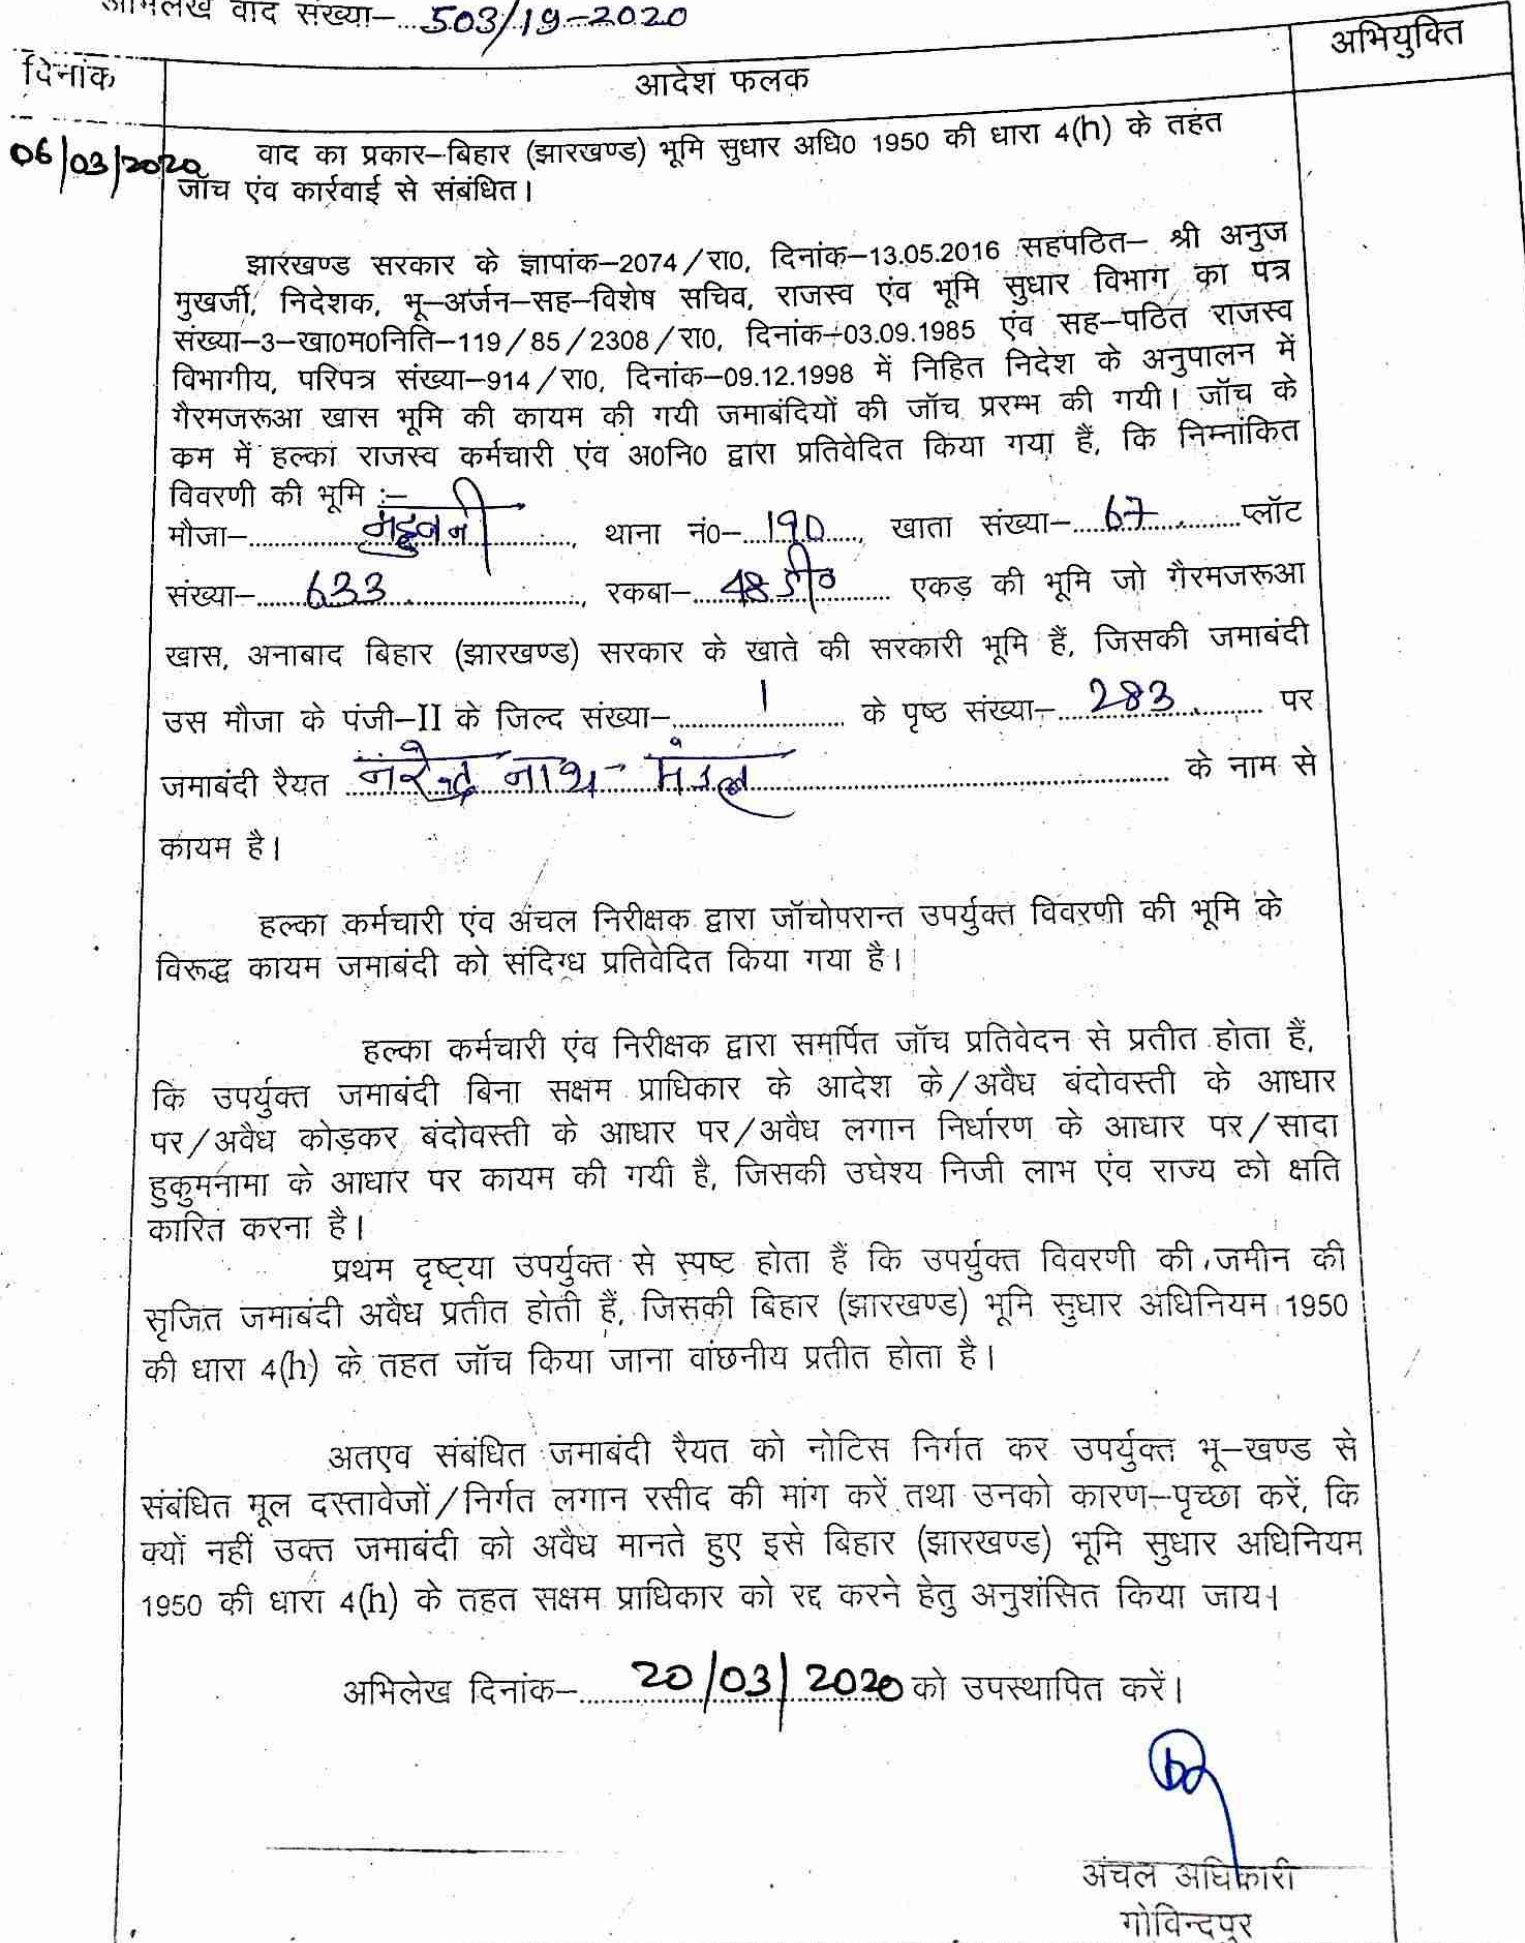 अभिलेख वाद संख्या-..503/19-2020
दिनांक आदेश फलक अभियुक्ति
06/03/2020 वाद का प्रकार–बिहार (झारखण्ड) भूमि सुधार अधि0 1950 की धारा 4(h) के तहत
जॉच एंव कार्रवाई से संबंधित।
झारखण्ड सरकार के ज्ञापांक–2074/रा0, दिनांक–13.05.2016 सहपठित– श्री अनुज
मुखर्जी, निदेशक, भू–अर्जन–सह–विशेष सचिव, राजस्व एंव भूमि सुधार विभाग का पत्र
संख्या–3–खा0म0निति–119/85/2308/रा0, दिनांक–03.09.1985 एंव सह–पठित राजस्व
विभागीय, परिपत्र संख्या–914/रा0, दिनांक–09.12.1998 में निहित निदेश के अनुपालन में
गैरमजरूआ खास भूमि की कायम की गयी जमाबंदियों की जॉच प्ररम्भ की गयी। जॉच के
कम में हल्का राजस्व कर्मचारी एंव अ0नि0 द्वारा प्रतिवेदित किया गया हैं, कि निम्नांकित
विवरणी की भूमि :–
मौजा–..........महुबनी.........., थाना नं0–...190..., खाता संख्या–...67........प्लॉट
संख्या–......633..............., रकबा–...48 डी0...... एकड़ की भूमि जो गैरमजरूआ
खास, अनाबाद बिहार (झारखण्ड) सरकार के खाते की सरकारी भूमि हैं, जिसकी जमाबंदी
उस मौजा के पंजी–II के जिल्द संख्या–.......1........ के पृष्ठ संख्या–...283........ पर
जमाबंदी रैयत ..नरेन्द्र नाथ मंडल.............................. के नाम से
कायम है।
हल्का कर्मचारी एंव अंचल निरीक्षक द्वारा जॉचोपरान्त उपर्युक्त विवरणी की भूमि के
विरूद्ध कायम जमाबंदी को संदिग्ध प्रतिवेदित किया गया है।
हल्का कर्मचारी एंव निरीक्षक द्वारा समर्पित जॉच प्रतिवेदन से प्रतीत होता हैं,
कि उपर्युक्त जमाबंदी बिना सक्षम प्राधिकार के आदेश के/अवैध बंदोवस्ती के आधार
पर/अवैध कोड़कर बंदोवस्ती के आधार पर/अवैध लगान निर्धारण के आधार पर/सादा
हुकुमनामा के आधार पर कायम की गयी है, जिसकी उघेश्य निजी लाभ एंव राज्य को क्षति
कारित करना है।
प्रथम दृष्ट्या उपर्युक्त से स्पष्ट होता हैं कि उपर्युक्त विवरणी की जमीन की
सृजित जमाबंदी अवैध प्रतीत होती हैं, जिसकी बिहार (झारखण्ड) भूमि सुधार अधिनियम 1950
की धारा 4(h) के तहत जॉच किया जाना वांछनीय प्रतीत होता है।
अतएव संबंधित जमाबंदी रैयत को नोटिस निर्गत कर उपर्युक्त भू–खण्ड से
संबंधित मूल दस्तावेजों/निर्गत लगान रसीद की मांग करें तथा उनको कारण–पृच्छा करें, कि
क्यों नहीं उक्त जमाबंदी को अवैध मानते हुए इसे बिहार (झारखण्ड) भूमि सुधार अधिनियम
1950 की धारा 4(h) के तहत सक्षम प्राधिकार को रद्द करने हेतु अनुशंसित किया जाय।
अभिलेख दिनांक–....20/03/2020 को उपस्थापित करें।
अंचल अधिकारी
गोविन्दपुर